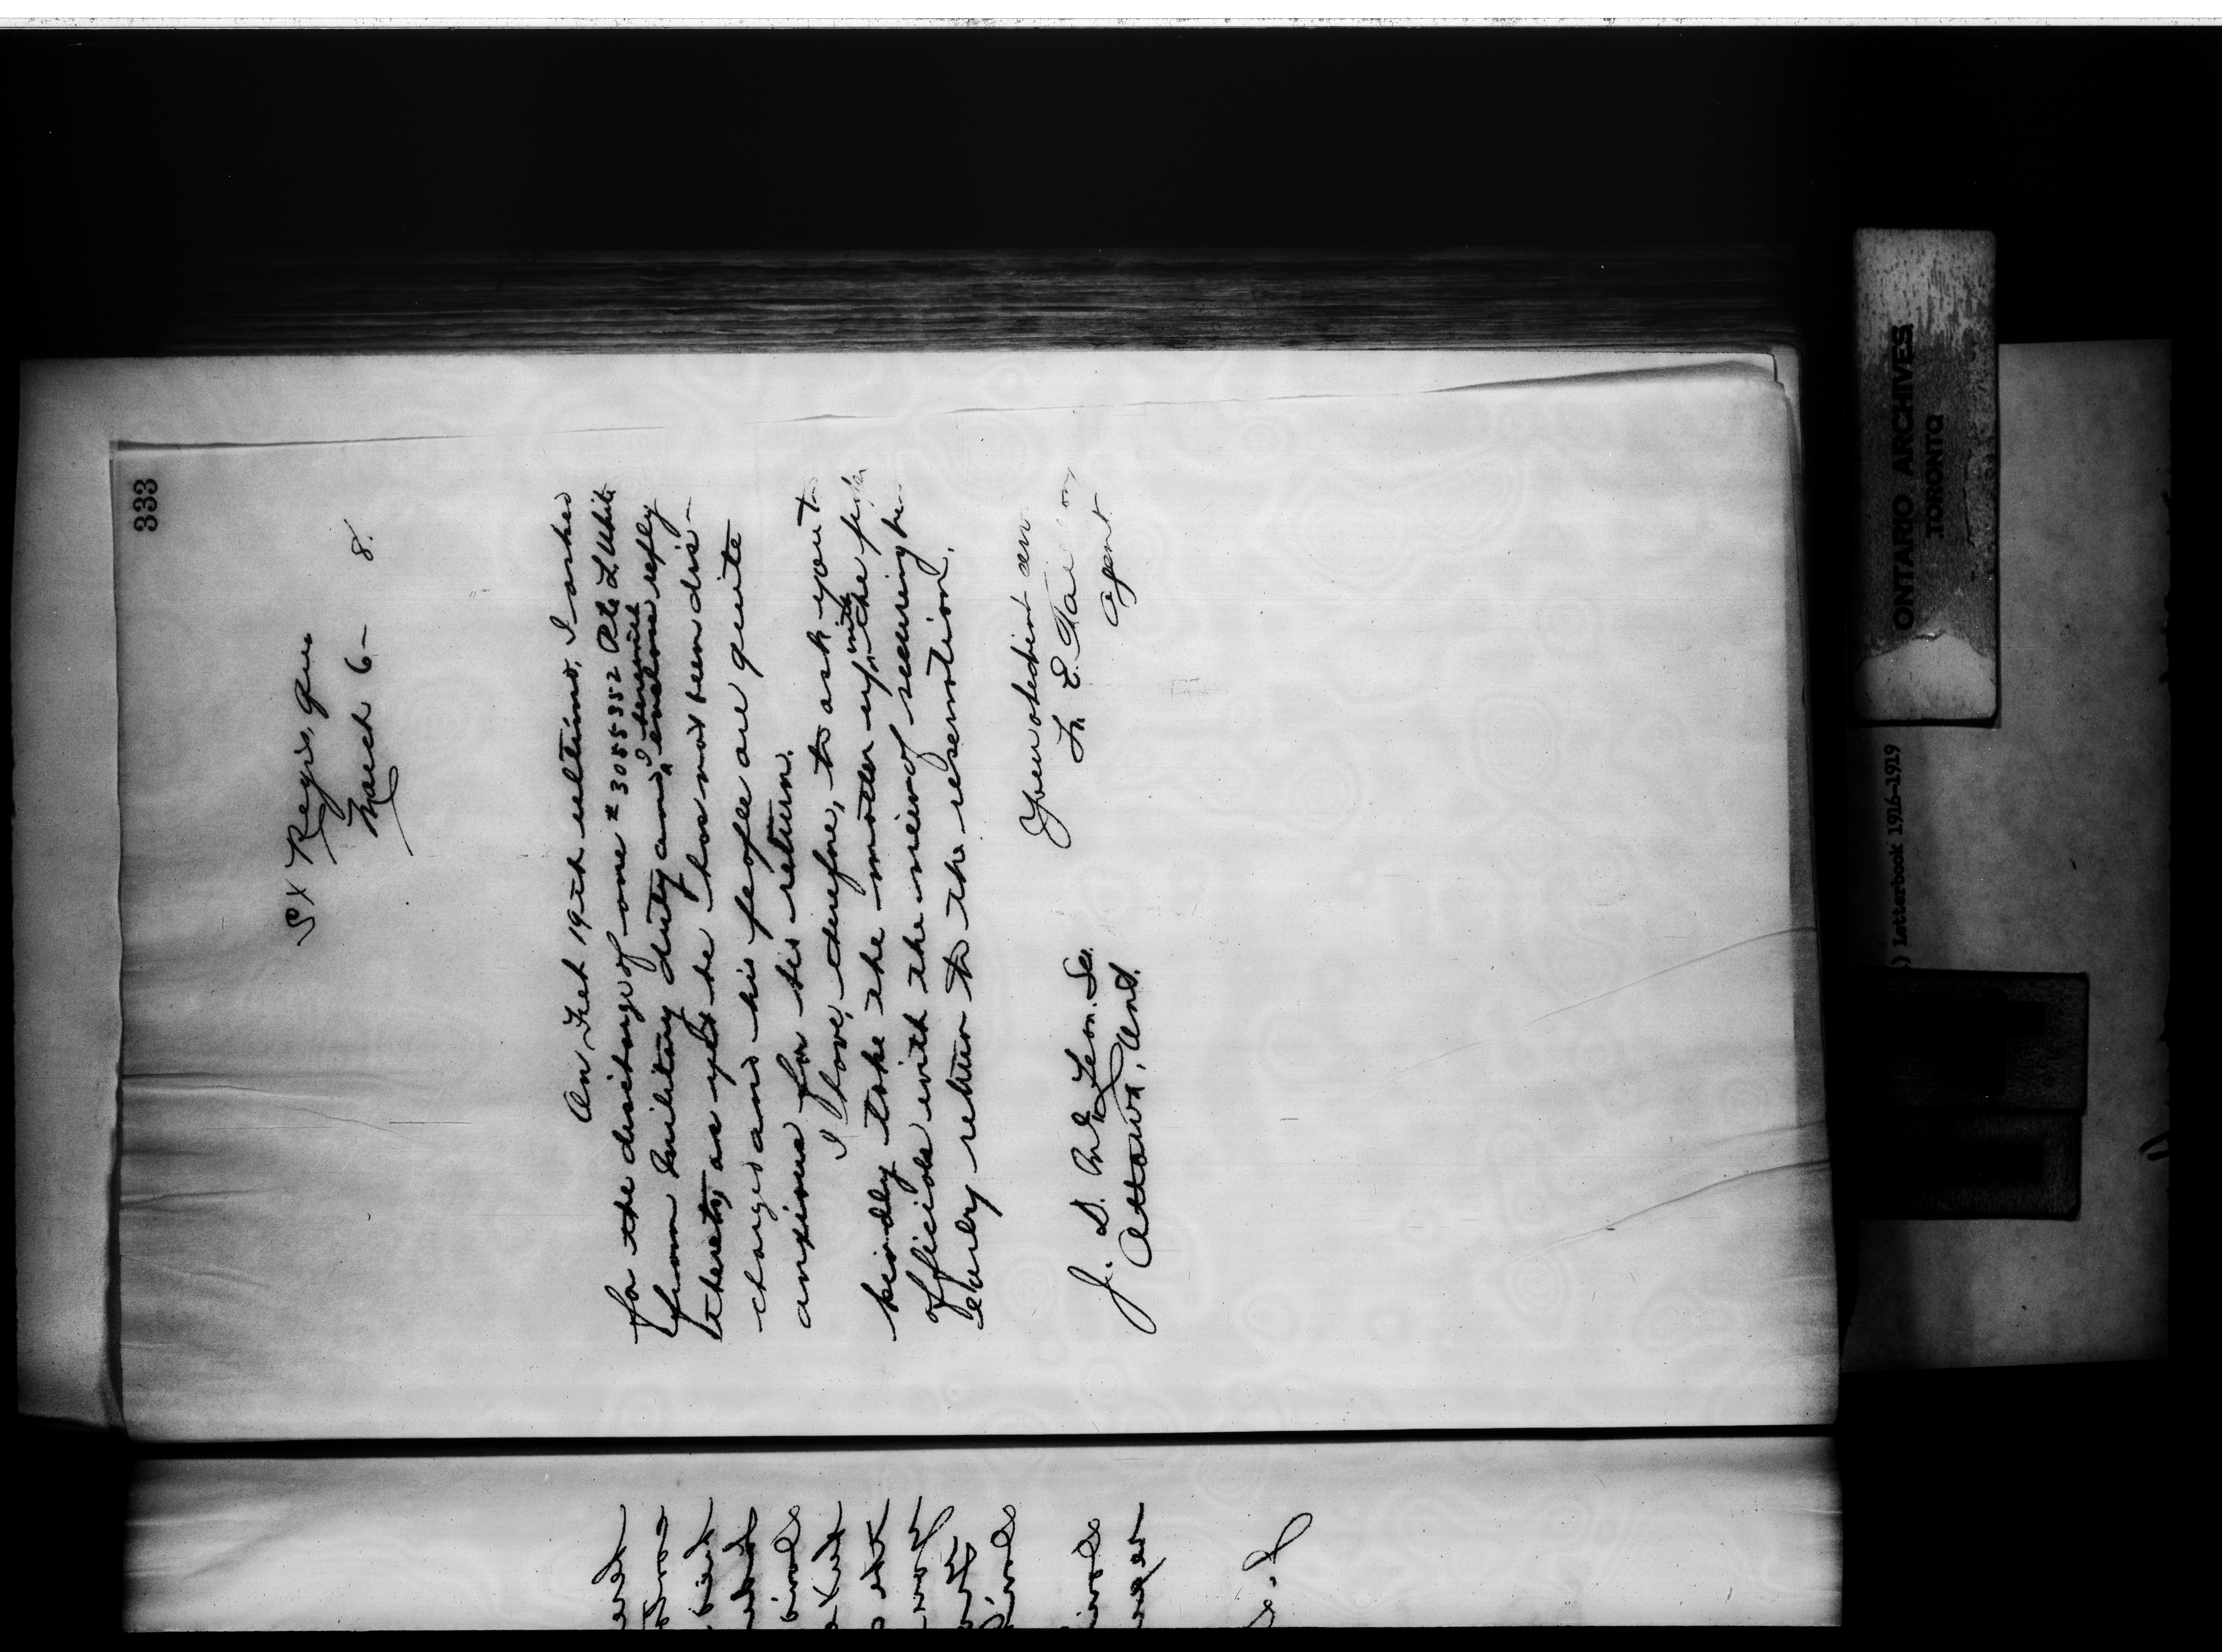 333
St Regis, Que
March 6 - 8.
On Feb 19th ultimo, I asked
for the discharge of one # 3085352 Pte L. White
from military duty and, I
enclose reply
thereto, as yet he has not been dis-
charged and his people are quite
anxious for his return.
I have, therefore, to ask you to
kindly take the matter up with the
officials with the view of securing
early return to the reservation.
Your obedient
F. E. Taillon
Agent
J. D. McLean. Sec.
Ottawa, Ont.
ONTARIO ARCHIVES
TORONTO
) Letterbook 1916-1919